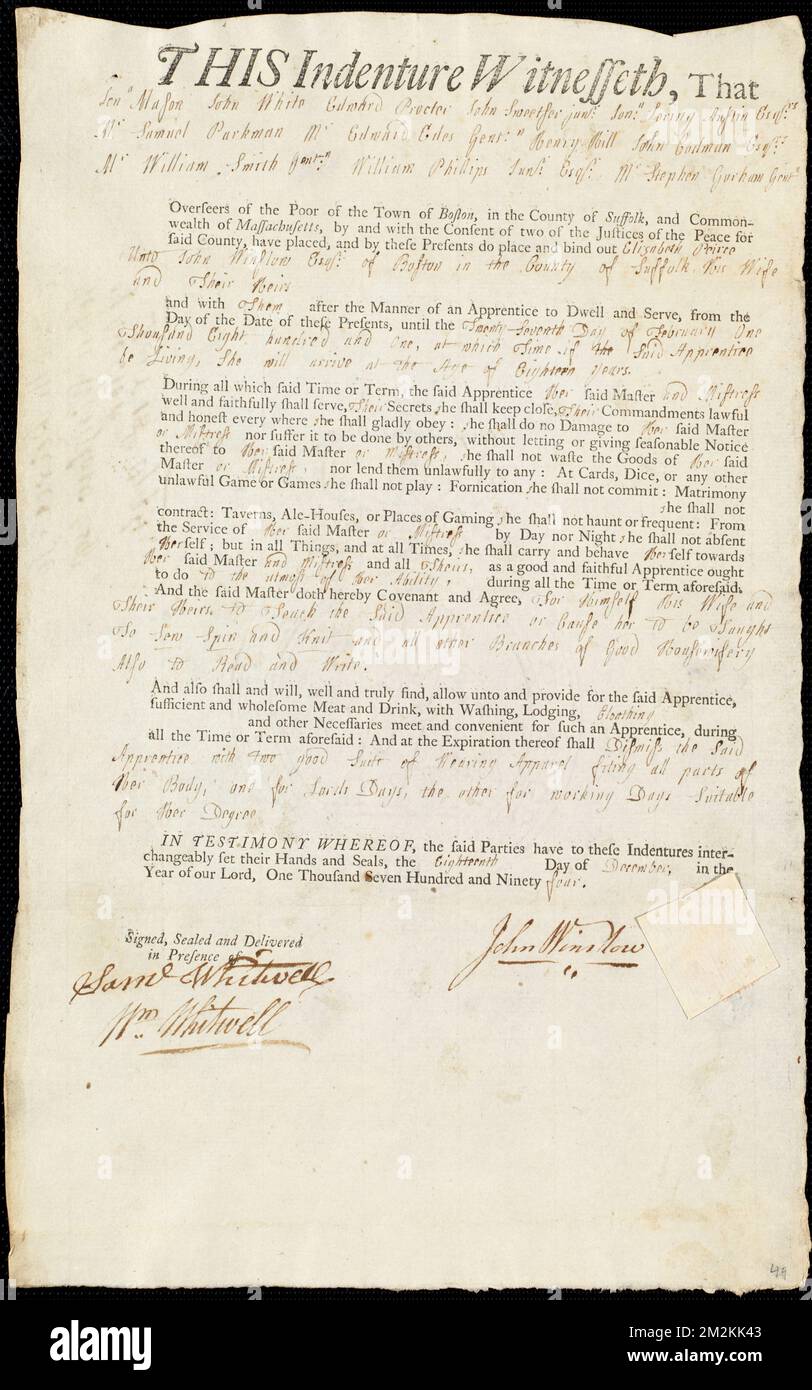 THIS Indenture Witnesseth, That
Jonᵃ Mason John White Edward Procter John Sweetser Junʳ Jonᵃ Loring Austin Esqʳˢ
Mʳ Samuel Parkman Mʳ Edward Edes Gentⁿ Henry Hill John Codman Esqʳˢ
Mʳ William Smith Gentⁿ William Phillips Junʳ Esqʳ Mʳ Stephen Gorham Gentⁿ
Overseers of the Poor of the Town of Boston, in the County of Suffolk, and Common-
wealth of Massachusetts, by and with the Consent of two of the Justices of the Peace for
said County, have placed, and by these Presents do place and bind out Elizabeth Peirce
Unto John Winslow Esqʳ of Boston in the County of Suffolk His Wife
and Their Heirs
and with Them after the Manner of an Apprentice to Dwell and Serve, from the
Day of the Date of these Presents, until the Twenty Seventh Day of February One
Thousand Eight hundred and One, at which Time if the said Apprentice
be Living, She will arrive at the Age of Eighteen Years.
During all which said Time or Term, the said Apprentice Her said Master and Mistress
well and faithfully shall serve, Their Secrets she shall keep close, Their Commandments lawful
and honest every where she shall gladly obey: she shall do no Damage to Her said Master
or Mistress nor suffer it to be done by others, without letting or giving seasonable Notice
thereof to Her said Master or Mistress, she shall not waste the Goods of Her said
Master or Mistress, nor lend them unlawfully to any: At Cards, Dice, or any other
unlawful Game or Games she shall not play: Fornication she shall not commit: Matrimony
she shall not
contract: Taverns, Ale-Houses, or Places of Gaming she shall not haunt or frequent: From
the Service of Her said Master or Mistress by Day nor Night she shall not absent
Herself; but in all Things, and at all Times, she shall carry and behave Herself towards
Her said Master and Mistress and all Theirs, as a good and faithful Apprentice ought
to do to the utmost of Her Ability, during all the Time or Term aforesaid.
And the said Master doth hereby Covenant and Agree, For Himself His Wife and
Their Heirs, to Teach the Said Apprentice or Cause her to be Taught
To Sew Spin and Knit and all other Branches of Good Housewifery
Also to Read and Write.
And also shall and will, well and truly find, allow unto and provide for the said Apprentice,
sufficient and wholesome Meat and Drink, with Washing, Lodging, Cloathing
and other Necessaries meet and convenient for such an Apprentice, during
all the Time or Term aforesaid: And at the Expiration thereof shall Dismiss the Said
Apprentice with two good Suits of Wearing Apparel fiting all parts of
Her Body, one for Lords Days, the other for working Days Suitable
for Her Degree
IN TESTIMONY WHEREOF, the said Parties have to these Indentures inter-
changeably set their Hands and Seals, the Eighteenth Day of December, in the
Year of our Lord, One Thousand Seven Hundred and Ninety four.
Signed, Sealed and Delivered
in Presence of
John Winslow
Samˡ Whitwell
Wm Whitwell
alamy
a
alamy
Image ID: 2M2KK43
www.alamy.com